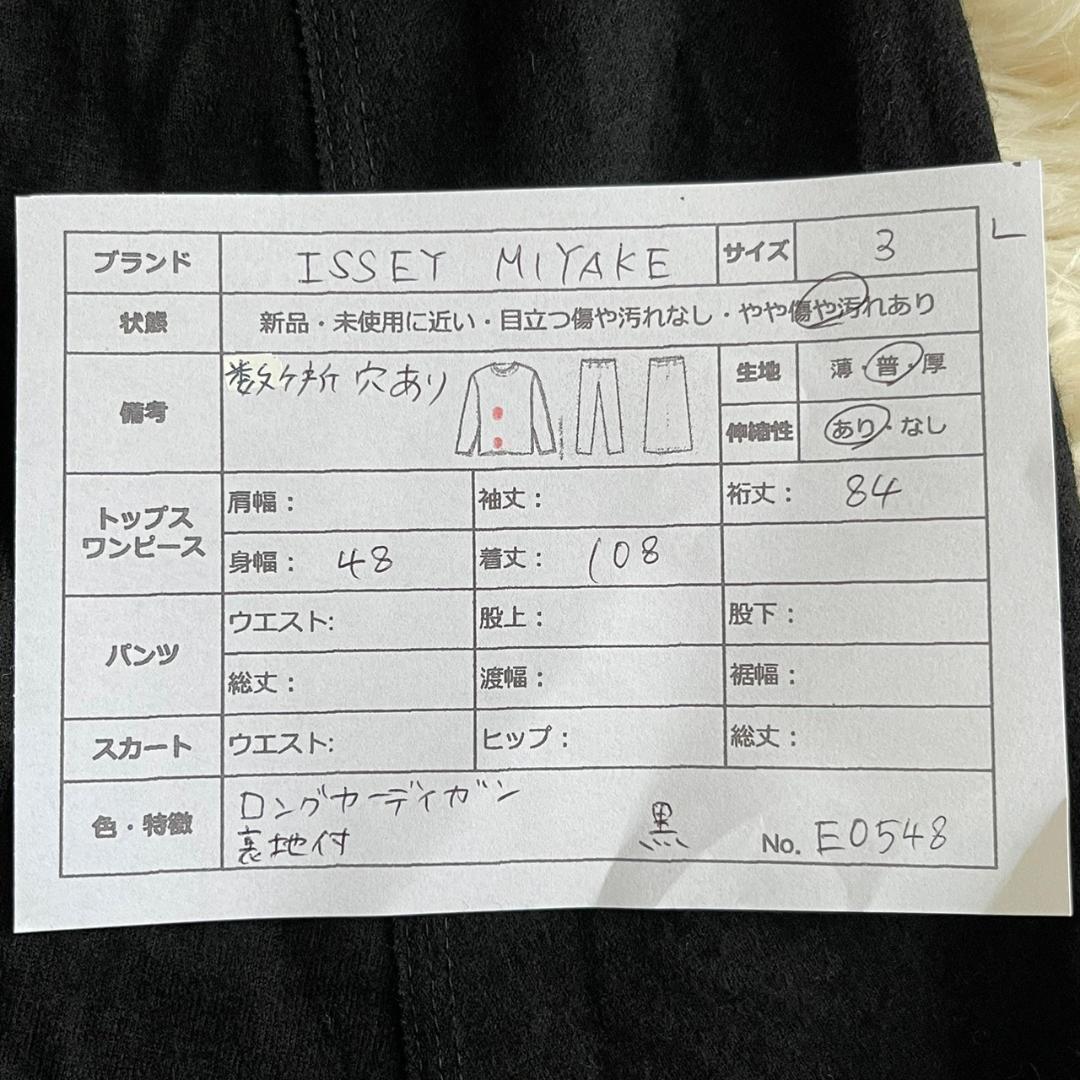 ブランド ISSEY MIYAKE サイズ 3 L
状態 新品・未使用に近い・目立つ傷や汚れなし・やや傷や汚れあり
備考 数ヶ所 穴あり 生地 薄・普・厚
伸縮性 あり・なし
トップス ワンピース 肩幅： 袖丈： 裄丈： 84
身幅： 48 着丈： 108
パンツ ウエスト: 股上： 股下：
総丈： 渡幅： 裾幅：
スカート ウエスト: ヒップ： 総丈：
色・特徴 ロングカーディガン
裏地付 黒 No. E0548